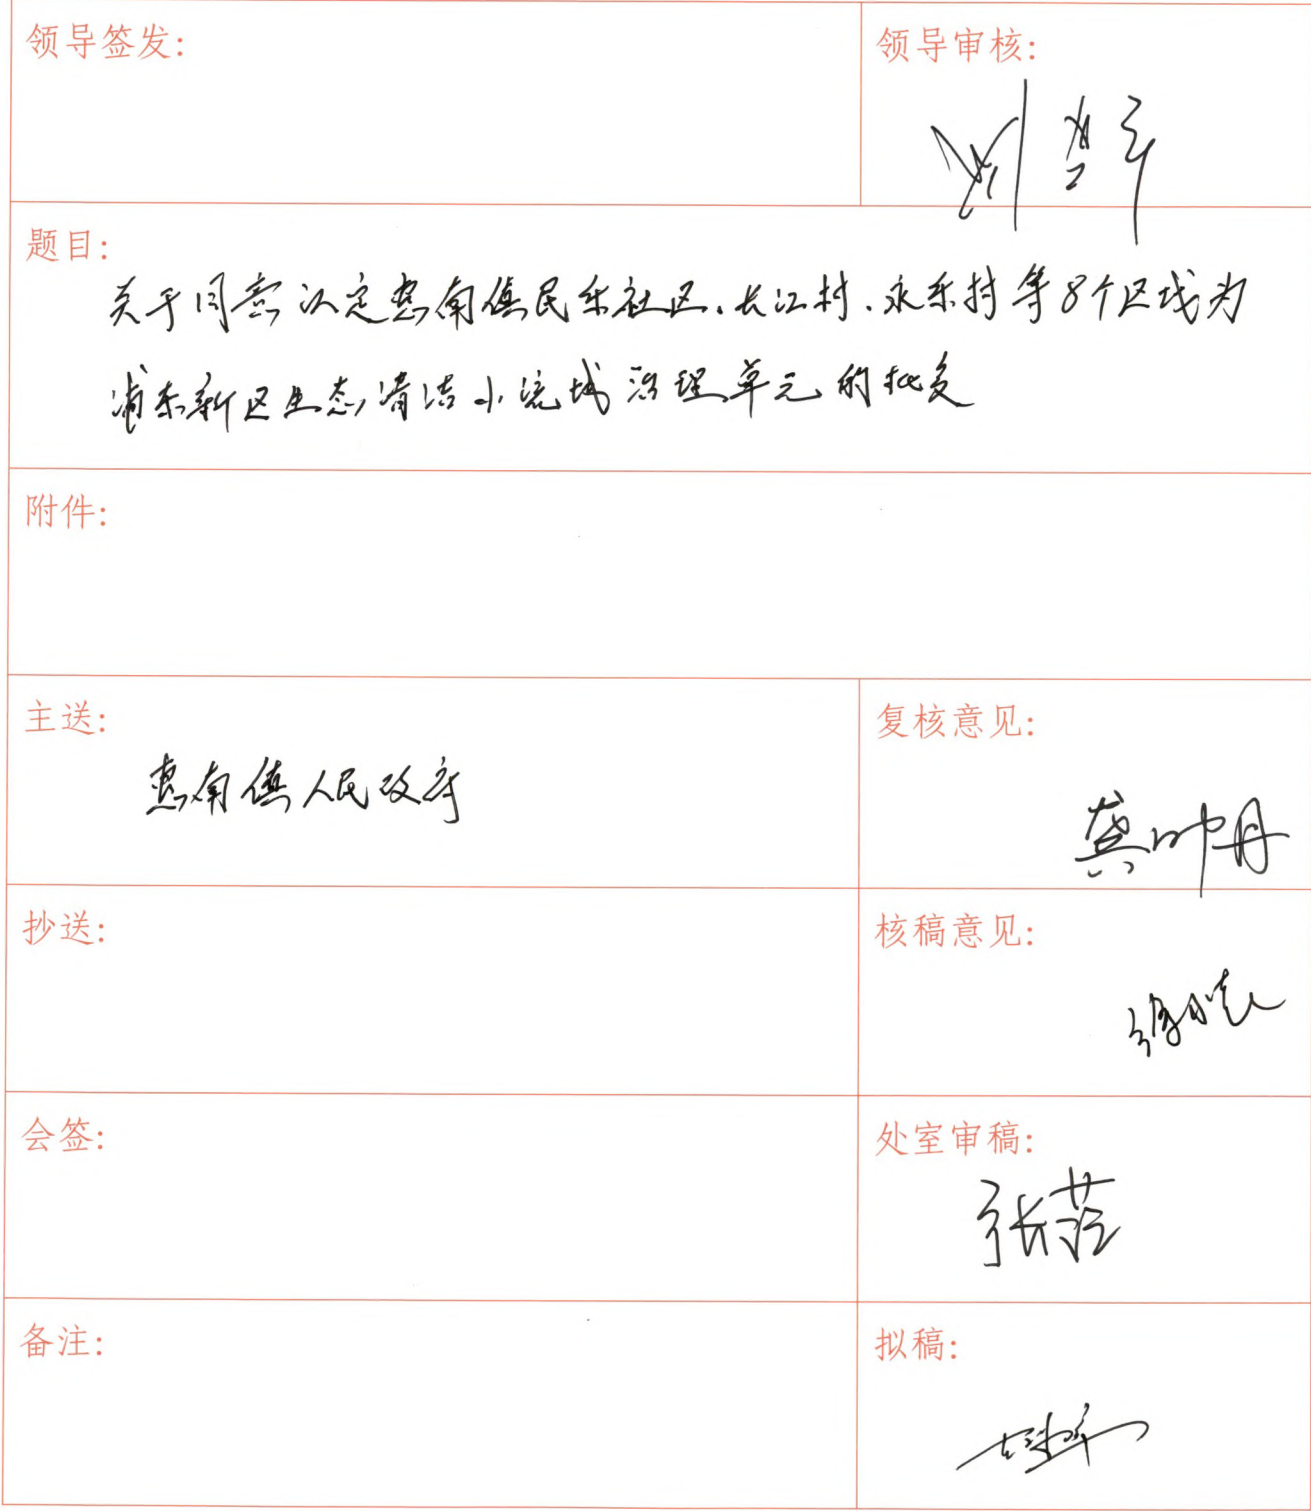 领导签发:
领导审核:
题目:
关于同意认定惠南镇民乐社区、长江村、永乐村等8个区域为
浦东新区生态清洁小流域治理单元的批复
附件:
主送:
惠南镇人民政府
复核意见:
龚帅丹
抄送:
核稿意见:
会签:
处室审稿:
备注:
拟稿: